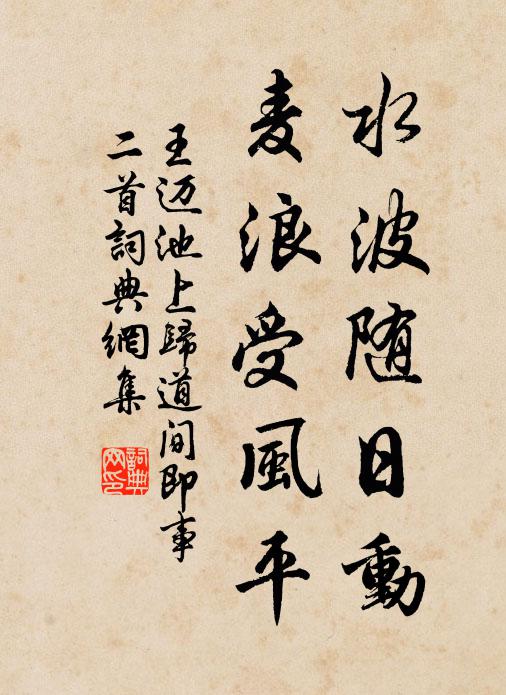 水波随日動
麦浪受風平
王迈池上歸道间即事
二首詞典網集
詞典
网印